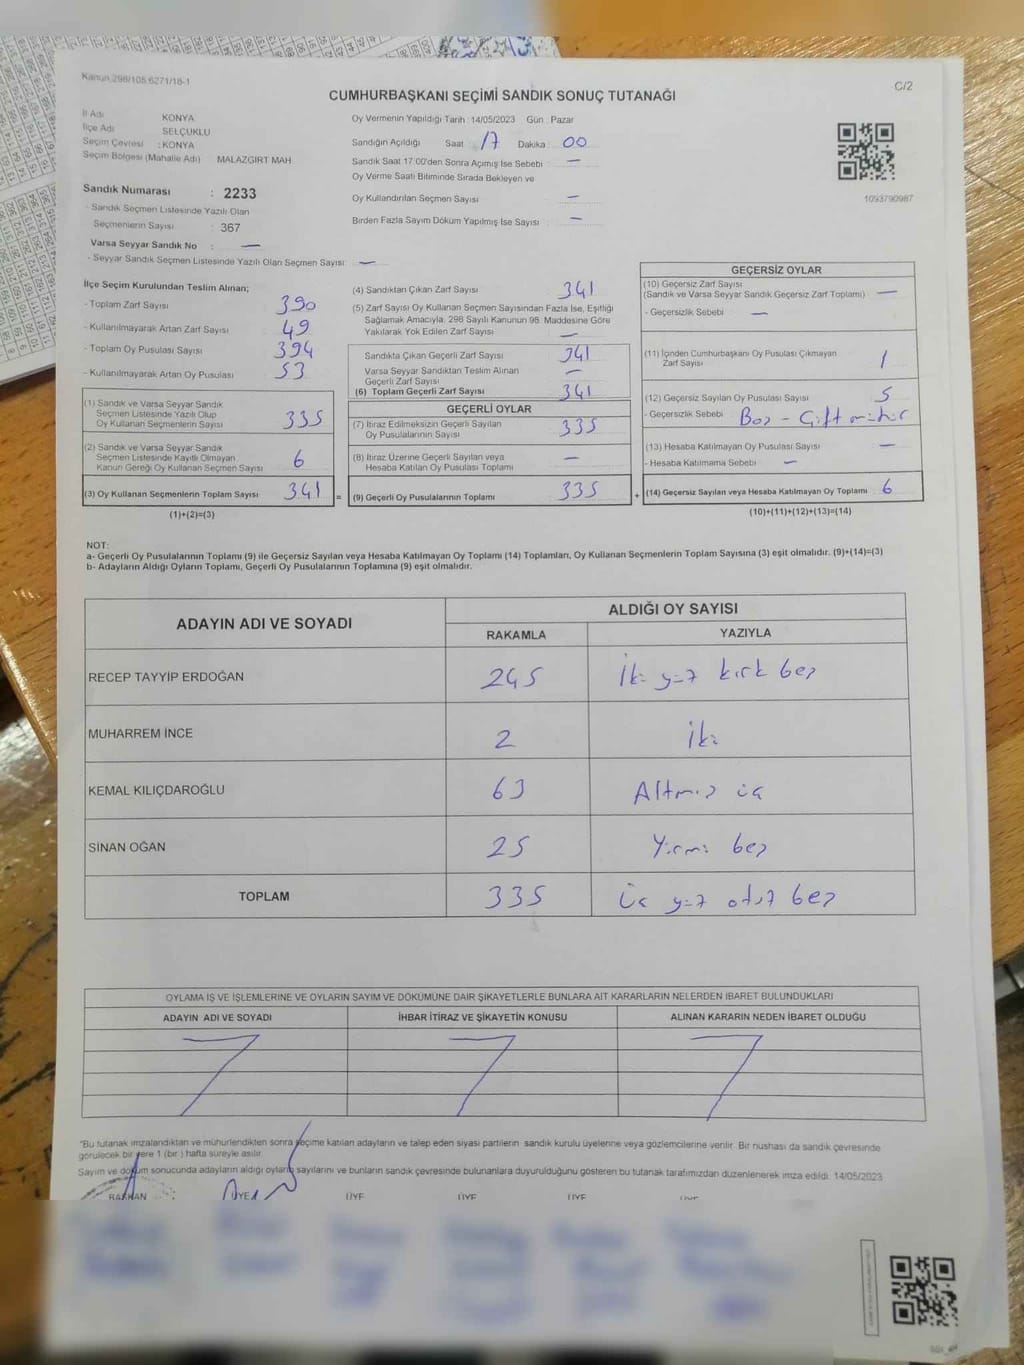 Kanun 298/105 6271/18-1
C/2
CUMHURBAŞKANI SEÇİMİ SANDIK SONUÇ TUTANAĞI
İl Adı KONYA
İlçe Adı SELÇUKLU
Seçim Çevresi : KONYA
Seçim Bölgesi (Mahalle Adı) MALAZGIRT MAH
Sandık Numarası : 2233
- Sandık Seçmen Listesinde Yazılı Olan
Seçmenlerin Sayısı : 367
Varsa Seyyar Sandık No : —
- Seyyar Sandık Seçmen Listesinde Yazılı Olan Seçmen Sayısı: —
Oy Vermenin Yapıldığı Tarih : 14/05/2023 Gün : Pazar
Sandığın Açıldığı Saat : 17 Dakika : 00
Sandık Saat 17:00'den Sonra Açımış İse Sebebi : —
Oy Verme Saati Bitiminde Sırada Bekleyen ve
Oy Kullandırılan Seçmen Sayısı : —
Birden Fazla Sayım Döküm Yapılmış İse Sayısı : —
1093790987
İlçe Seçim Kurulundan Teslim Alınan;
- Toplam Zarf Sayısı 390
- Kullanılmayarak Artan Zarf Sayısı 49
- Toplam Oy Pusulası Sayısı 394
- Kullanılmayarak Artan Oy Pusulası 53
(1) Sandık ve Varsa Seyyar Sandık
Seçmen Listesinde Yazılı Olup
Oy Kullanan Seçmenlerin Sayısı 335
(2) Sandık ve Varsa Seyyar Sandık
Seçmen Listesinde Kayıtlı Olmayan
Kanun Gereği Oy Kullanan Seçmen Sayısı 6
(3) Oy Kullanan Seçmenlerin Toplam Sayısı 341 =
(1)+(2)=(3)
(4) Sandıktan Çıkan Zarf Sayısı 341
(5) Zarf Sayısı Oy Kullanan Seçmen Sayısından Fazla İse, Eşitliği
Sağlamak Amacıyla, 298 Sayılı Kanunun 98. Maddesine Göre
Yakılarak Yok Edilen Zarf Sayısı —
Sandıkta Çıkan Geçerli Zarf Sayısı 341
Varsa Seyyar Sandıktan Teslim Alınan
Geçerli Zarf Sayısı —
(6) Toplam Geçerli Zarf Sayısı 341
GEÇERLİ OYLAR
(7) İtiraz Edilmeksizin Geçerli Sayılan
Oy Pusulalarının Sayısı 335
(8) İtiraz Üzerine Geçerli Sayılan veya
Hesaba Katılan Oy Pusulası Toplamı —
(9) Geçerli Oy Pusulalarının Toplamı 335 +
GEÇERSİZ OYLAR
(10) Geçersiz Zarf Sayısı
(Sandık ve Varsa Seyyar Sandık Geçersiz Zarf Toplamı) —
- Geçersizlik Sebebi : —
(11) İçinden Cumhurbaşkanı Oy Pusulası Çıkmayan
Zarf Sayısı 1
(12) Geçersiz Sayılan Oy Pusulası Sayısı 5
- Geçersizlik Sebebi : Boş - Çift mühür
(13) Hesaba Katılmayan Oy Pusulası Sayısı —
- Hesaba Katılmama Sebebi : —
(14) Geçersiz Sayılan veya Hesaba Katılmayan Oy Toplamı 6
(10)+(11)+(12)+(13)=(14)
NOT:
a- Geçerli Oy Pusulalarının Toplamı (9) ile Geçersiz Sayılan veya Hesaba Katılmayan Oy Toplamı (14) Toplamları, Oy Kullanan Seçmenlerin Toplam Sayısına (3) eşit olmalıdır. (9)+(14)=(3)
b- Adayların Aldığı Oyların Toplamı, Geçerli Oy Pusulalarının Toplamına (9) eşit olmalıdır.
ADAYIN ADI VE SOYADI ALDIĞI OY SAYISI
RAKAMLA YAZIYLA
RECEP TAYYİP ERDOĞAN 245 İki yüz kırk beş
MUHARREM İNCE 2 İki
KEMAL KILIÇDAROĞLU 63 Altmış üç
SİNAN OĞAN 25 Yirmi beş
TOPLAM 335 üç yüz otuz beş
OYLAMA İŞ VE İŞLEMLERİNE VE OYLARIN SAYIM VE DÖKÜMÜNE DAİR ŞİKAYETLERLE BUNLARA AİT KARARLARIN NELERDEN İBARET BULUNDUKLARI
ADAYIN ADI VE SOYADI İHBAR İTİRAZ VE ŞİKAYETİN KONUSU ALINAN KARARIN NEDEN İBARET OLDUĞU
*Bu tutanak imzalandıktan ve mühürlendikten sonra seçime katılan adayların ve talep eden siyasi partilerin sandık kurulu üyelerine veya gözlemcilerine verilir. Bir nüshası da sandık çevresinde
görülecek bir yere 1 (bir) hafta süreyle asılır.
Sayım ve döküm sonucunda adayların aldığı oyların sayılarını ve bunların sandık çevresinde bulunanlara duyurulduğunu gösteren bu tutanak tarafımızdan düzenlenerek imza edildi. 14/05/2023
BAŞKAN ÜYE ÜYE ÜYE ÜYE ÜYE